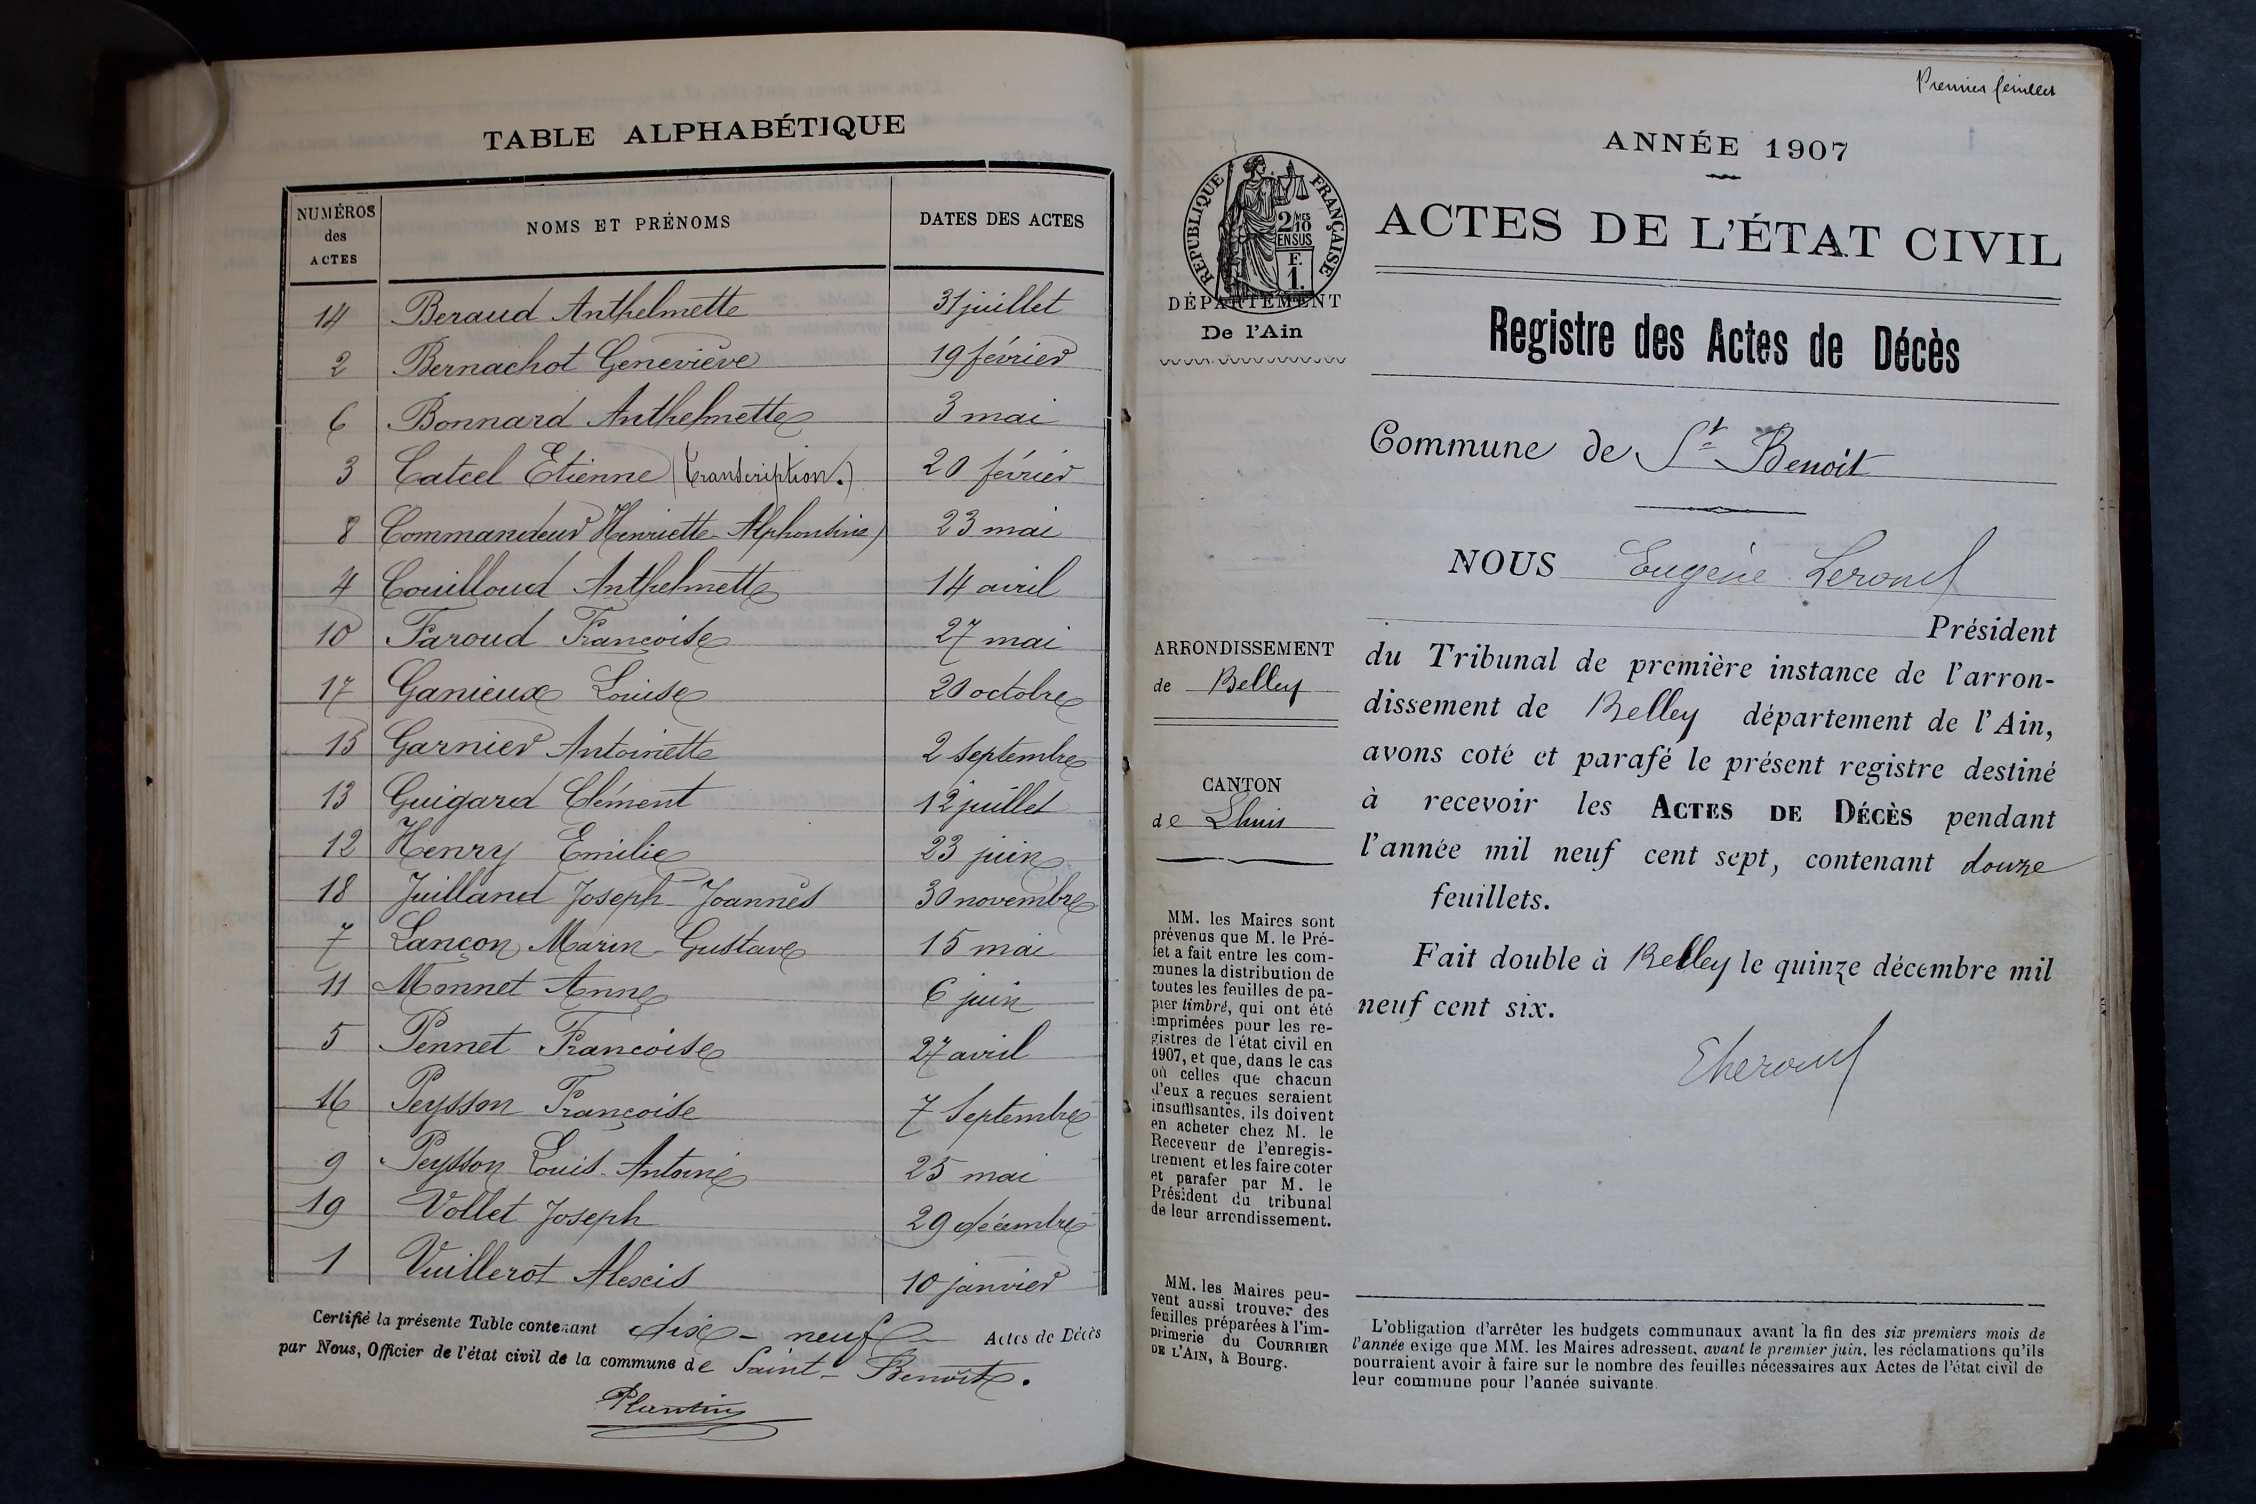 TABLE ALPHABÉTIQUE
NUMÉROS des ACTES
NOMS ET PRÉNOMS
DATES DES ACTES
14 Beraud Anthelmette 31 juillet
2 Bernachot Geneviève 19 février
6 Bonnard Anthelmette 3 mai
3 Catcel Etienne (transcription.) 20 février
8 Commandeur Henriette Alphonsine 23 mai
4 Couilloud Anthelmette 14 avril
10 Faroud Françoise 27 mai
17 Ganieux Louise 20 octobre
15 Garnier Antoinette 2 septembre
13 Guigard Clément 12 juillet
12 Henry Emilie 23 juin
18 Juilland Joseph Joannès 30 novembre
7 Lançon Marin Gustave 15 mai
11 Monnet Anne 6 juin
5 Pennet Françoise 27 avril
16 Peysson Françoise 7 septembre
9 Peysson Louis-Antoine 25 mai
19 Vollet Joseph 29 décembre
1 Vuillerot Alexis 10 janvier
Certifié la présente Table contenant dix-neuf Actes de Décès
par Nous, Officier de l'état civil de la commune de Saint-Benoît.
Plantin
Premier feuillet
RÉPUBLIQUE FRANÇAISE
2/10MES
EN SUS
F.
1.
DÉPARTEMENT
De l'Ain
ARRONDISSEMENT
de Belley
CANTON
de Lhuis
MM. les Maires sont
prévenus que M. le Pré-
fet a fait entre les com-
munes la distribution de
toutes les feuilles de pa-
pier timbré, qui ont été
imprimées pour les re-
gistres de l'état civil en
1907, et que, dans le cas
où celles que chacun
d'eux a reçues seraient
insuffisantes, ils doivent
en acheter chez M. le
Receveur de l'enregis-
trement et les faire coter
et parafer par M. le
Président du tribunal
de leur arrondissement.
MM. les Maires peu-
vent aussi trouver des
feuilles préparées à l'im-
primerie du COURRIER
DE L'AIN, à Bourg.
ANNÉE 1907
ACTES DE L'ÉTAT CIVIL
Registre des Actes de Décès
Commune de St Benoit
NOUS Eugène
Président
du Tribunal de première instance de l'arron-
dissement de Belley département de l'Ain,
avons coté et parafé le présent registre destiné
à recevoir les ACTES DE DÉCÈS pendant
l'année mil neuf cent sept, contenant douze
feuillets.
Fait double à Belley le quinze décembre mil
neuf cent six.
L'obligation d'arrêter les budgets communaux avant la fin des six premiers mois de
l'année exige que MM. les Maires adressent, avant le premier juin, les réclamations qu'ils
pourraient avoir à faire sur le nombre des feuilles nécessaires aux Actes de l'état civil de
leur commune pour l'année suivante.